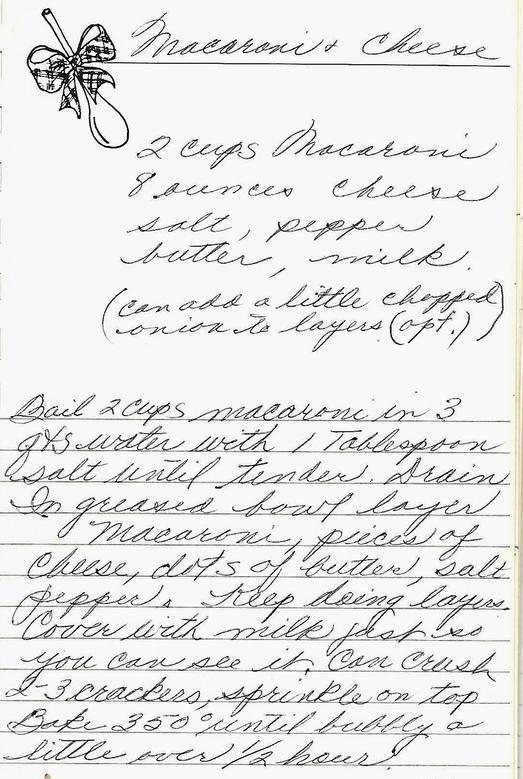 Macaroni + Cheese
2 cups Macaroni
8 ounces cheese
salt, pepper
butter, milk.
(can add a little chopped
onion to layers (opt.))
Boil 2 cups macaroni in 3
qts water with 1 Tablespoon
salt until tender. Drain
In greased bowl layer
Macaroni, pieces of
cheese, dots of butter, salt
pepper. Keep doing layers.
Cover with milk just so
you can see it. Can crush
2-3 crackers, sprinkle on top
Bake 350° until bubbly a
little over 1/2 hour.